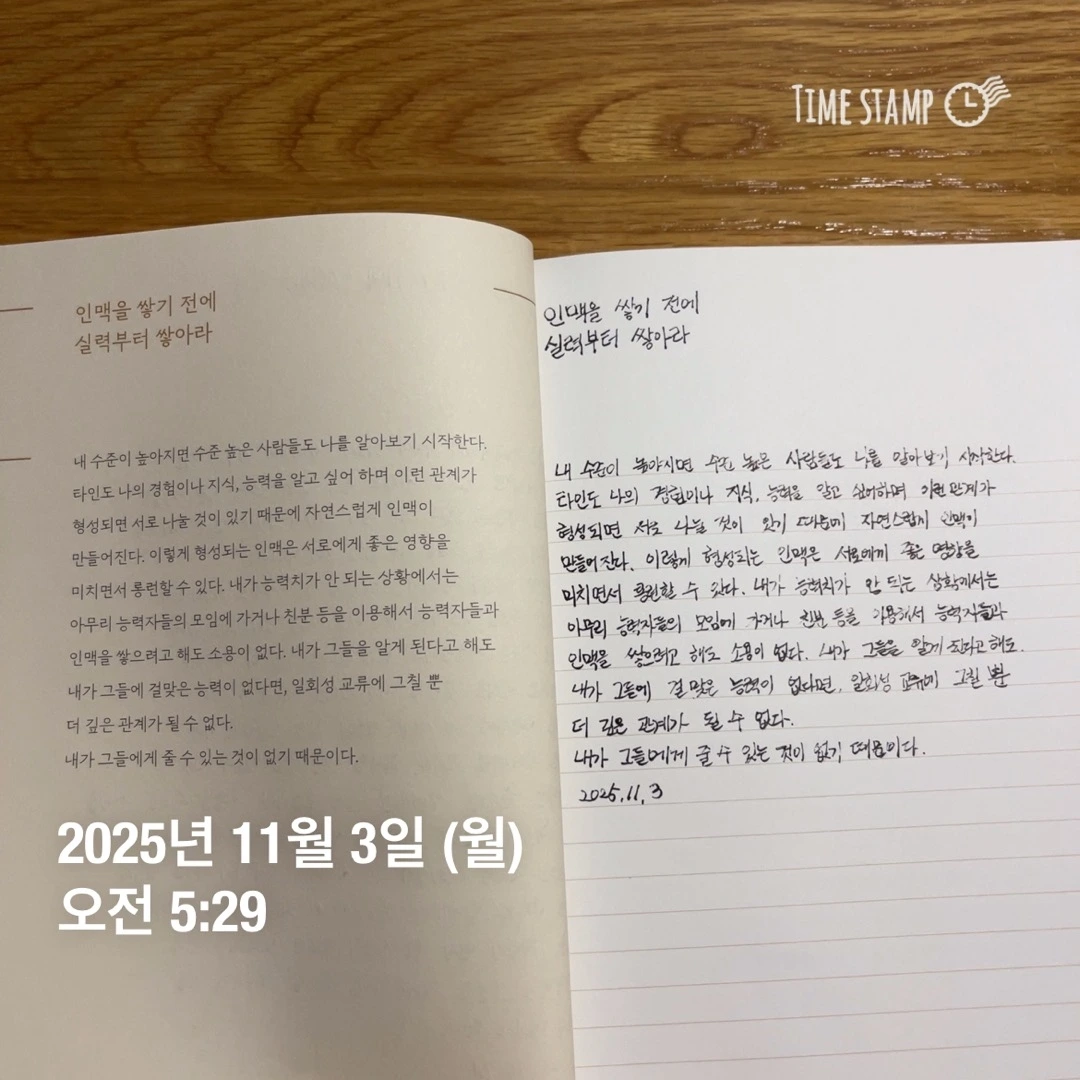 TIME STAMP
인맥을 쌓기 전에
실력부터 쌓아라
내 수준이 높아지면 수준 높은 사람들도 나를 알아보기 시작한다.
타인도 나의 경험이나 지식, 능력을 알고 싶어 하며 이런 관계가
형성되면 서로 나눌 것이 있기 때문에 자연스럽게 인맥이
만들어진다. 이렇게 형성되는 인맥은 서로에게 좋은 영향을
미치면서 롱런할 수 있다. 내가 능력치가 안 되는 상황에서는
아무리 능력자들의 모임에 가거나 친분 등을 이용해서 능력자들과
인맥을 쌓으려고 해도 소용이 없다. 내가 그들을 알게 된다고 해도
내가 그들에 걸맞은 능력이 없다면, 일회성 교류에 그칠 뿐
더 깊은 관계가 될 수 없다.
내가 그들에게 줄 수 있는 것이 없기 때문이다.
2025년 11월 3일 (월)
오전 5:29
인맥을 쌓기 전에
실력부터 쌓아라
내 수준이 높아지면 수준 높은 사람들도 나를 알아보기 시작한다.
타인도 나의 경험이나 지식, 능력을 알고 싶어하며 이런 관계가
형성되면 서로 나눌 것이 있기 때문에 자연스럽게 인맥이
만들어진다. 이렇게 형성되는 인맥은 서로에게 좋은 영향을
미치면서 롱런할 수 있다. 내가 능력치가 안 되는 상황에서는
아무리 능력자들의 모임에 가거나 친분 등을 이용해서 능력자들과
인맥을 쌓으려고 해도 소용이 없다. 내가 그들을 알게 된다고 해도.
내가 그들에 걸맞은 능력이 없다면, 일회성 교류에 그칠 뿐
더 깊은 관계가 될 수 없다.
내가 그들에게 줄 수 있는 것이 없기 때문이다.
2025.11.3